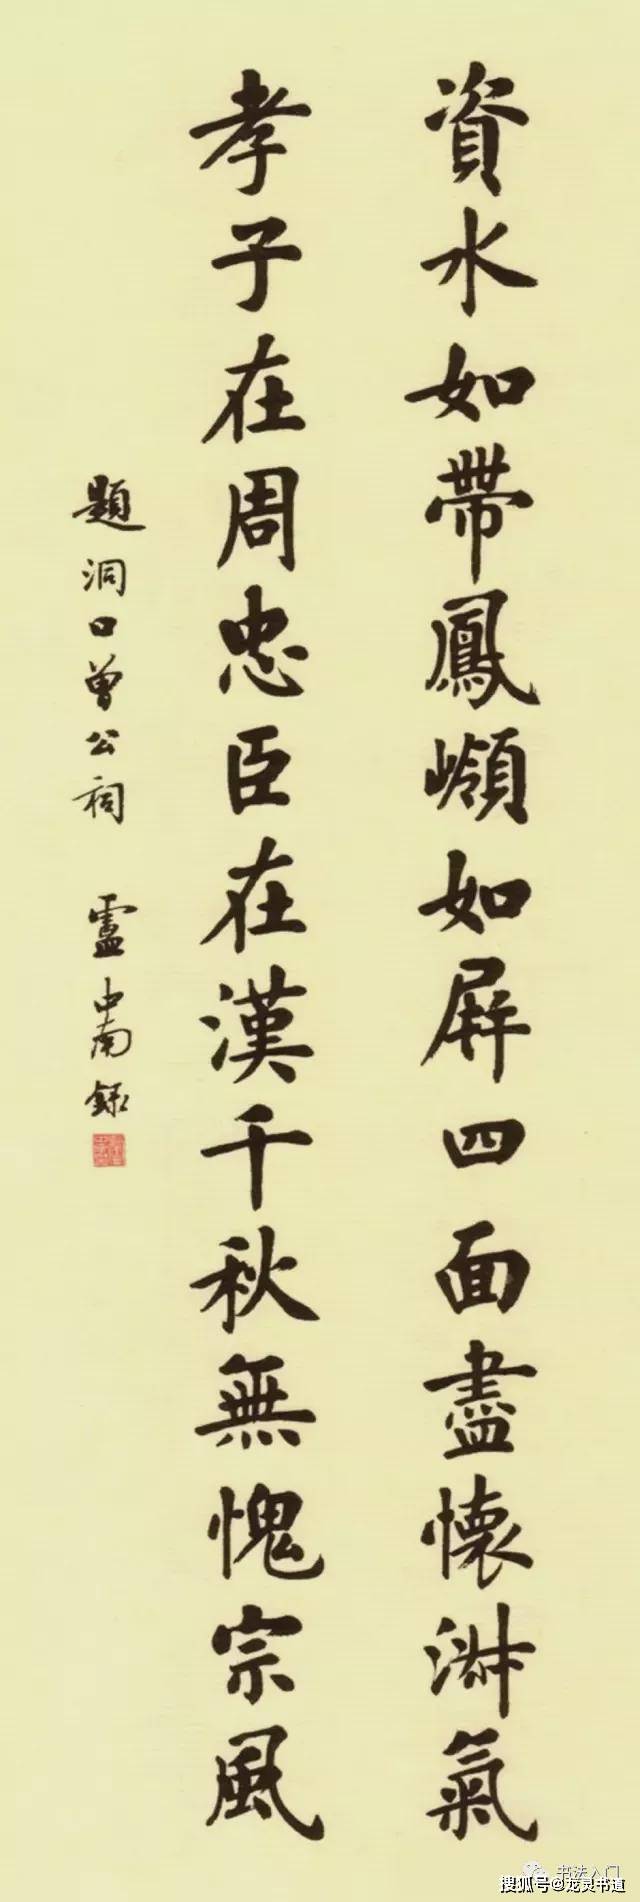 資水如帶鳳嶺如屏四面盡懷淑氣
孝子在周忠臣在漢千秋無愧宗風
題洞口曾公祠 盧中南錄
书法入门
搜狐号@龙灵书道